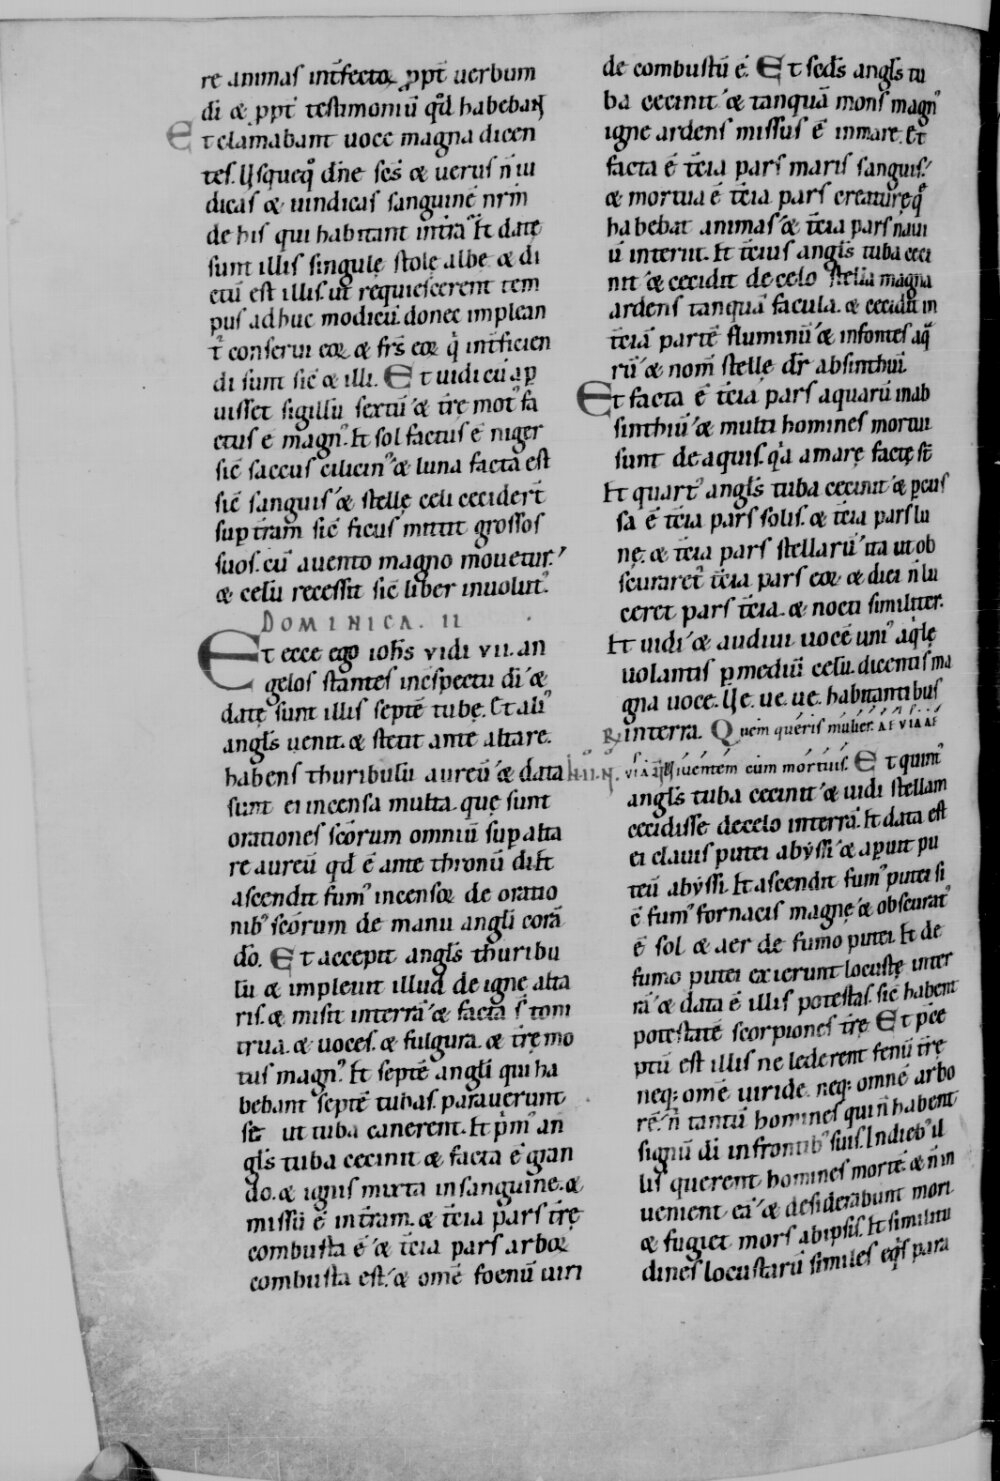 re animas intf̄ectoꝝ ꝓpt̄ uerbum
dī & ꝓpt̄ testimoniū qd̄ habebanꞇ
Et clamabant uoce magna dicen
tes. Usquequo dn̄e sc̄s & uerus n̄ iu
dicas & uindicas sanguinē nr̄m
de his qui habitant int̄ra. Et datę
sunt illis singulę stolę albę & di
ctū est illis. ut requiescerent tem
pus adhuc modicū. donec implean
t᷑ conserui eoꝝ & frs̄ eoꝝ qͥ int̄ficien
di sunt sic̄ & illi. Et uidi cū aꝑ
uisset sigillū sextū & t̄rę motꝰ fa
ctus ē magnꝰ. Et sol factus ē niger
sic̄ saccus cilicinꝰ & luna facta est
sic̄ sanguis & stellę celi cecider̄t
suꝑ t̄ram sic̄ ficus mittit grossos
suos. cū a uento magno mouetur.
& celū recessit sic̄ liber inuolutꝰ.
DOMINICA. II
Et ecce ego ioh̄s vidi vii. an
gelos stantes in c̄spectu dī &
datę sunt illis septē tubę. Et aliꝰ
angl̄s uenit. & stetit ante altare.
habens thuribulū aureū & data
sunt ei incensa multa. quę sunt
orationes sc̄orum omniū suꝑ alta
re aureū qd̄ ē ante thronū dī Et
ascendit fumꝰ incensoꝝ de oratio
nibꝰ sc̄orum de manu angli corā
dō. Et accepit angl̄s thuribu
lū & impleuit illud de igne alta
ris. & misit in terrā & facta s̄ toni
trua. & uoces. & fulgura. & t̄rę mo
tus magnꝰ. Et septē angli qui ha
bebant septē tubas. parauerunt
se ut tuba canerent. Et pͥmꝰ an
gl̄s tuba cecinit & facta ē gran
do. & ignis mixta in sanguine. &
missū ē in t̄ram. & t̄cia pars t̄rę
combusta ē & t̄cia pars arboꝝ
combusta est. & omē foenū uiri
de combustū ē. Et sc̄ds angl̄s tu
ba cecinit & tanquā mons magnꝰ
igne ardens missus ē in mare. Et
facta ē t̄cia pars maris sanguis.
& mortua ē t̄cia pars creaturę qͤ
habebat animas & t̄cia pars naui
ū interiit. Et t̄cius angl̄s tuba ceci
nit & cecidit de celo stella magna
ardens tanquā facula. & cecidit in
t̄ciā partē fluminū & in fontes aqͣ
rū & nom̄ stellę dr̄ absinthiū.
Et facta ē t̄cia pars aquarū in ab
sinthiū & multi homines mortui
sunt de aquis. qͥa amarę factę st̄
Et quartꝰ angl̄s tuba cecinit & ꝑcus
sa ē t̄cia pars solis. & t̄cia pars lu
nę. & t̄cia pars stellarū ita ut ob
scuraret᷑ t̄cia pars eoꝝ & diei n̄ lu
ceret pars t̄cia. & nocti similiter.
Et uidi & audiui uocē uniꝰ aqͥlę
uolantis ꝑ mediū celū. dicentis ma
gna uoce. Ue. ue. ue. habitantibus
in terra. Quem queris mulier. AEVIA AE
VIA uiuentem cum mortuis. Et quintꝰ
angl̄s tuba cecinit & uidi stellam
cecidisse de celo in terrā. Et data est
ei clauis putei abyssi & aꝑuit pu
teū abyssi. Et ascendit fumꝰ putei si
c̄ fumꝰ fornacis magnę & obscuratꝰ
ē sol & aer de fumo putei. Et de
fumo putei exierunt locustę in ter
rā & data ē illis potestas. sic̄ habent
potestatē scorpiones t̄rę Et p̄ce
ptū est illis ne lederent fenū t̄rę
neq; omē uiride. neq; omnē arbo
rē. n̄ tantū homines qui n̄ habent
signū dī in frontibꝰ suis. In diebꝰ il
lis querent homines mortē. & n̄ in
uenient eā & desiderabunt mori
& fugiet mors ab ipsis. Et similitu
dines locustarū similes eqͥs para